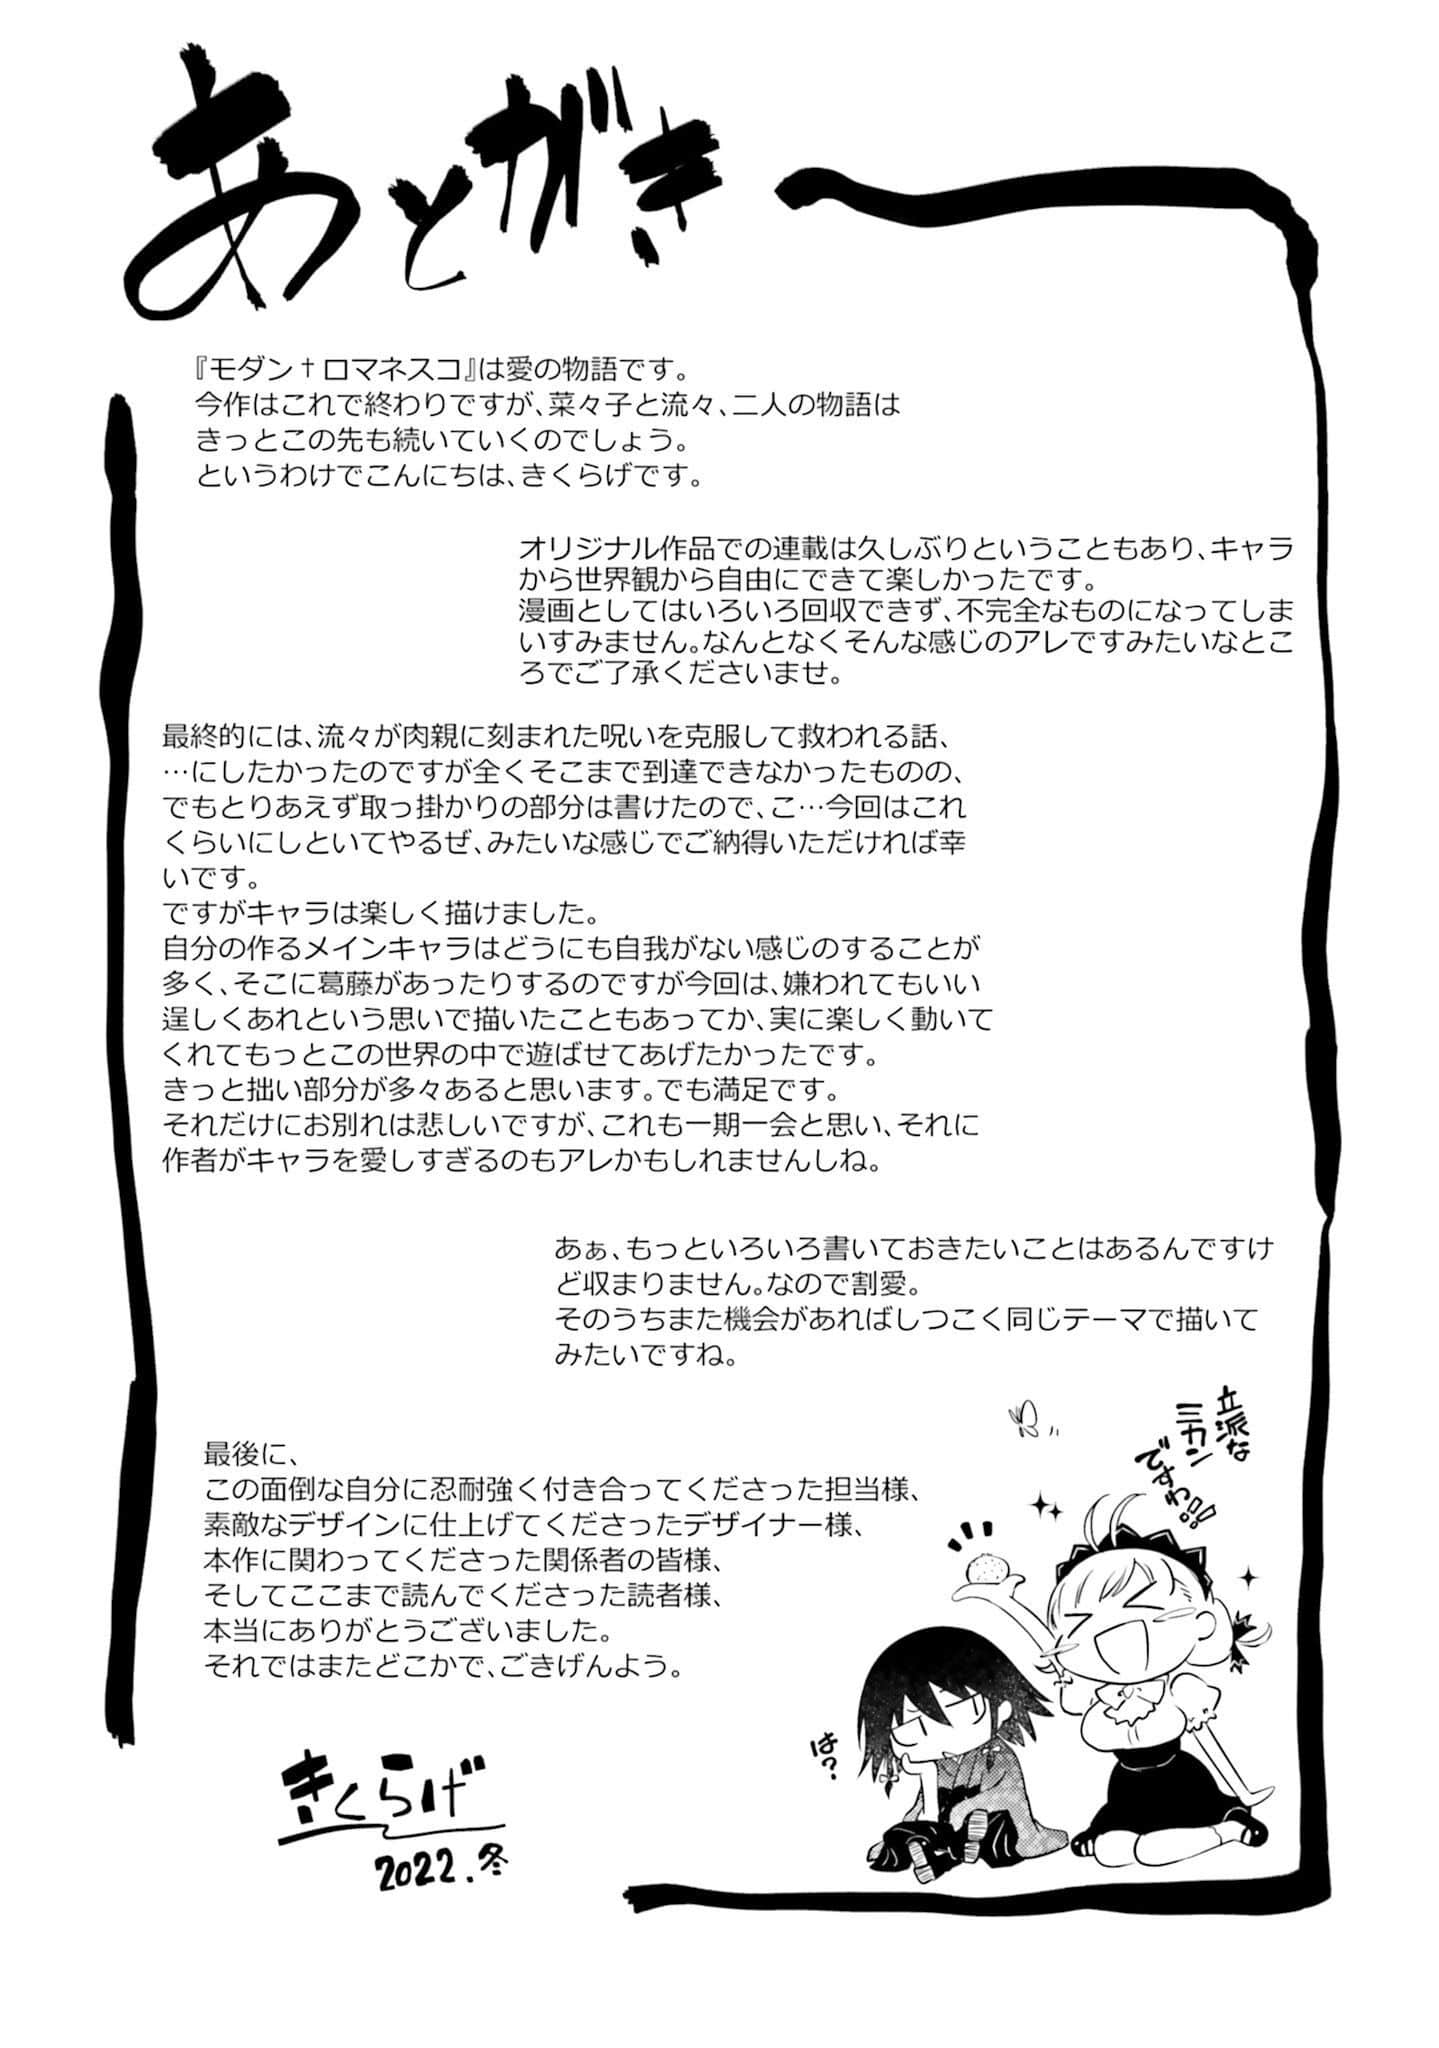 あとがき
『モダン†ロマネスコ』は愛の物語です。
今作はこれで終わりですが、菜々子と流々、二人の物語は
きっとこの先も続いていくのでしょう。
というわけでこんにちは、きくらげです。
オリジナル作品での連載は久しぶりということもあり、キャラ
から世界観から自由にできて楽しかったです。
漫画としてはいろいろ回収できず、不完全なものになってしま
いすみません。なんとなくそんな感じのアレですみたいなとこ
ろでご了承くださいませ。
最終的には、流々が肉親に刻まれた呪いを克服して救われる話、
…にしたかったのですが全くそこまで到達できなかったものの、
でもとりあえず取っ掛かりの部分は書けたので、こ…今回はこれ
くらいにしといてやるぜ、みたいな感じでご納得いただければ幸
いです。
ですがキャラは楽しく描けました。
自分の作るメインキャラはどうにも自我がない感じのすることが
多く、そこに葛藤があったりするのですが今回は、嫌われてもいい
逞しくあれという思いで描いたこともあってか、実に楽しく動いて
くれてもっとこの世界の中で遊ばせてあげたかったです。
きっと拙い部分が多々あると思います。でも満足です。
それだけにお別れは悲しいですが、これも一期一会と思い、それに
作者がキャラを愛しすぎるのもアレかもしれませんしね。
あぁ、もっといろいろ書いておきたいことはあるんですけ
ど収まりません。なので割愛。
そのうちまた機会があればしつこく同じテーマで描いて
みたいですね。
最後に、
この面倒な自分に忍耐強く付き合ってくださった担当様、
素敵なデザインに仕上げてくださったデザイナー様、
本作に関わってくださった関係者の皆様、
そしてここまで読んでくださった読者様、
本当にありがとうございました。
それではまたどこかで、ごきげんよう。
立派な
ミカン
ですわ!!
は?
きくらげ
2022.冬